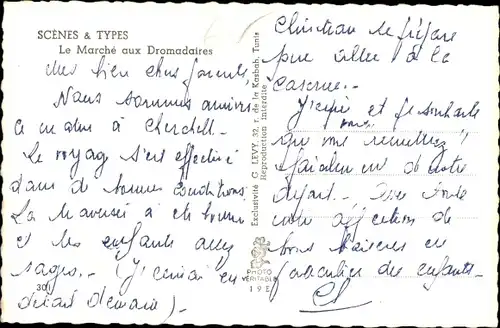 SCÈNES & TYPES
Le Marché aux Dromadaires
Mes bien chers parents,
Nous sommes arrivés
ce matin à Cherchell.
Le voyage s'est effectué
dans de bonnes conditions
La traversée a été bonne
et les enfants assez
sages. - (J'écrirai en
détail demain) -
301
Exclusivité C. LEVY, 32, r. de la Kasbah, Tunis
Reproduction interdite
PHOTO
VÉRITABLE
19E
Christian se prépare
pour aller à la
caserne. -
J'espère et je souhaite
que vous
vous remettez
de notre
départ. - Avec toute
mon affection de
bons baisers en
particulier des enfants -